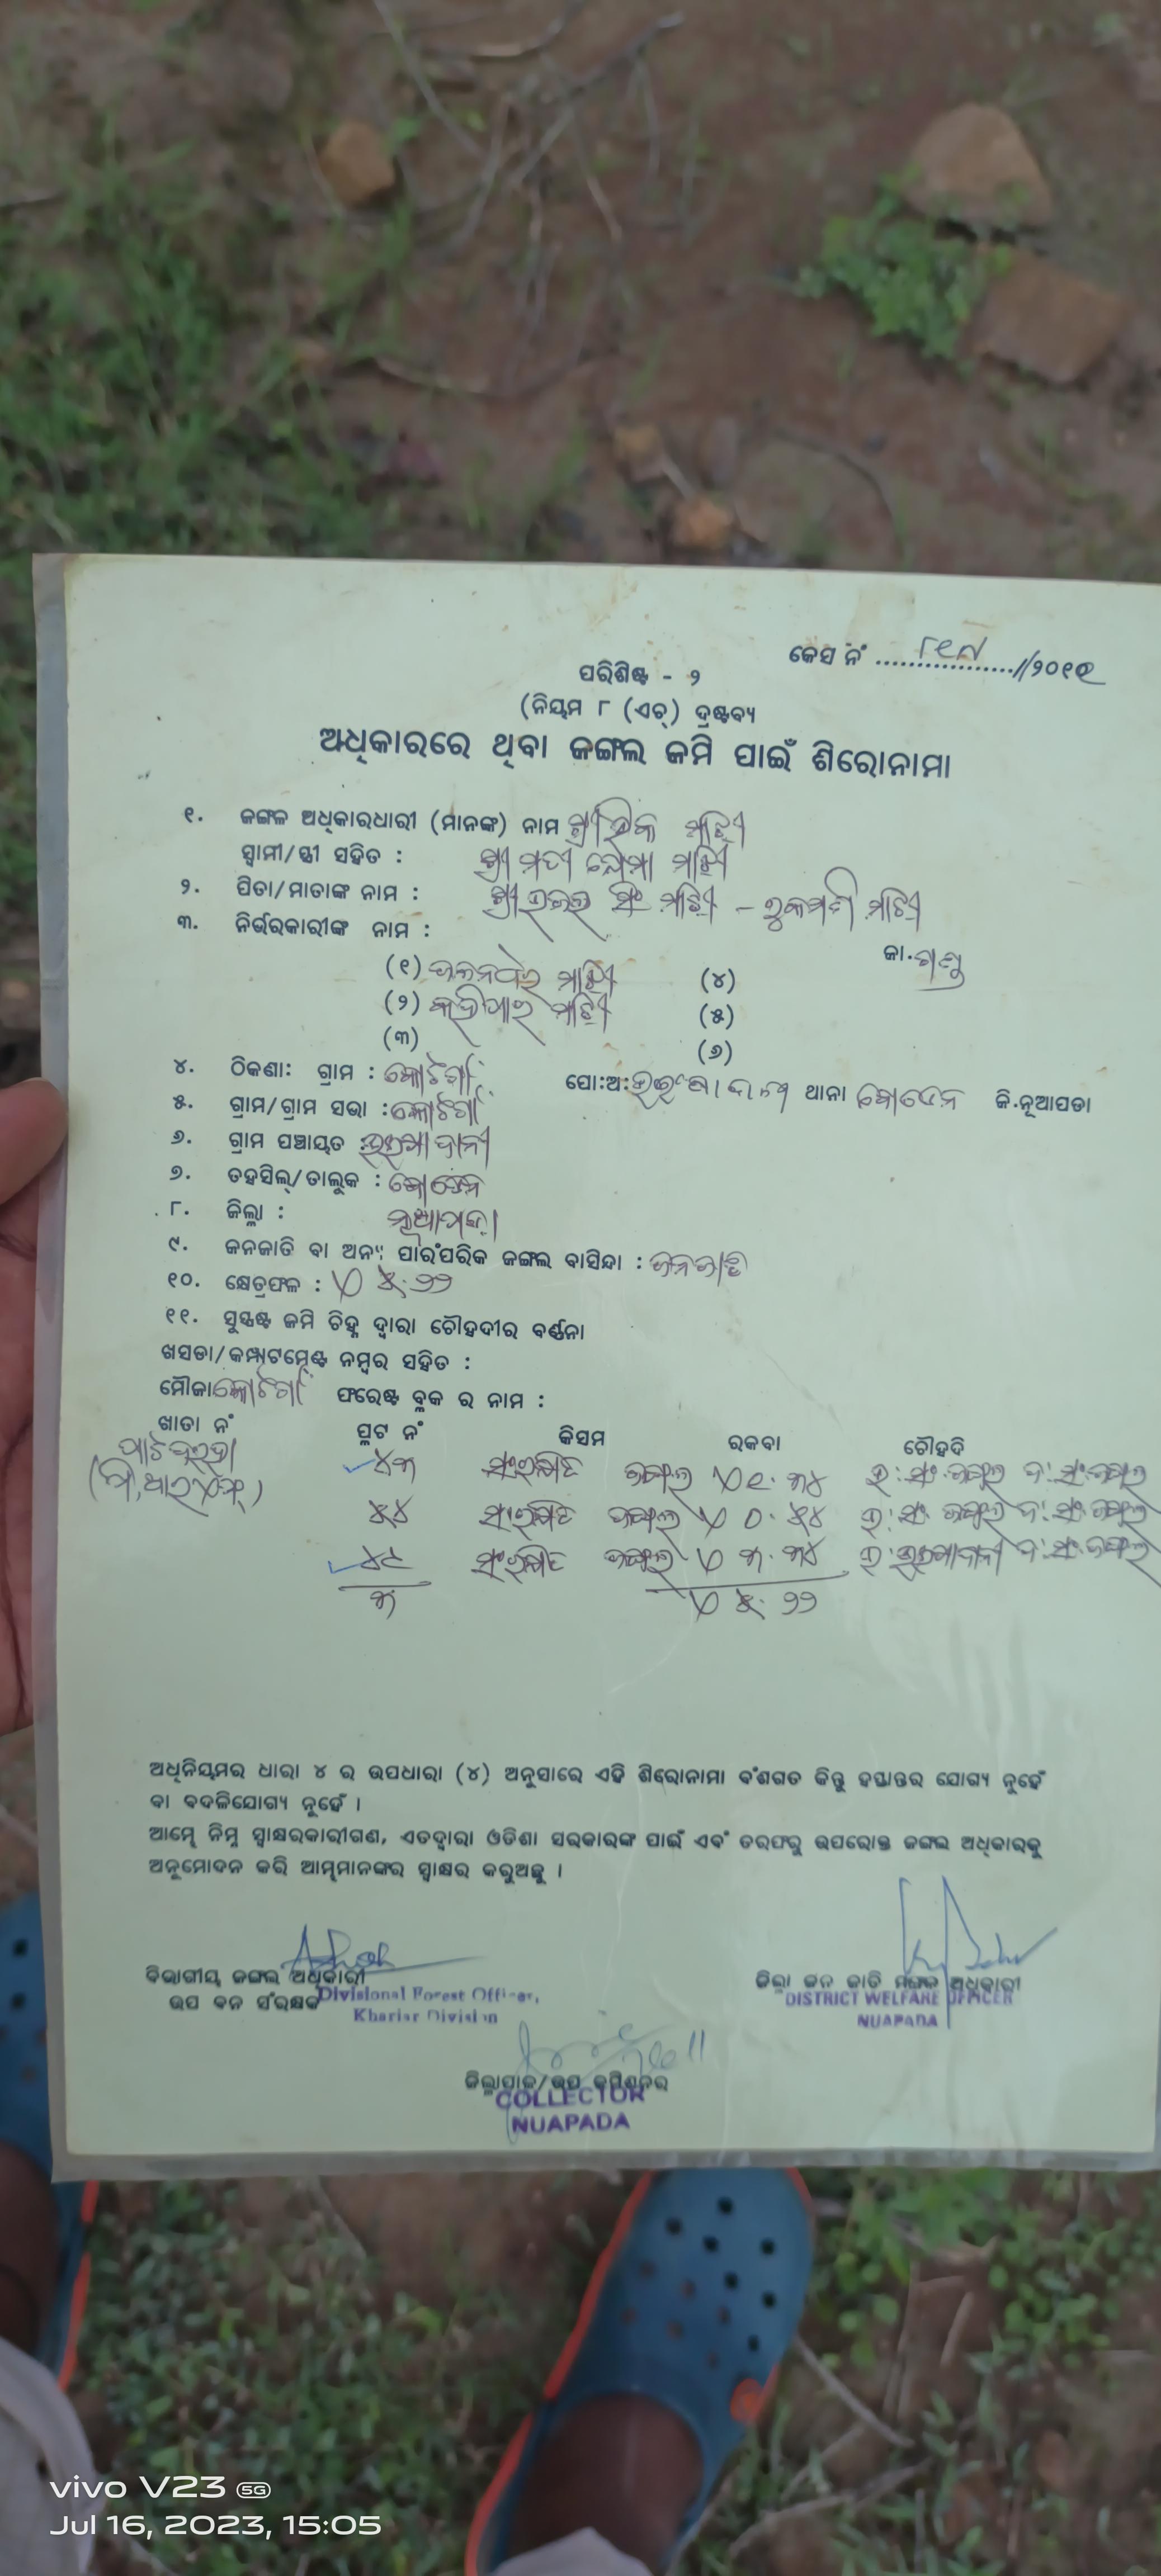 କେସ ନଂ ..................//୨୦୧୧
ପରିଶିଷ୍ଟ - ୨
(ନିୟମ ୮ (ଏଚ୍) ଦ୍ରଷ୍ଟବ୍ୟ
ଅଧିକାରରେ ଥିବା ଜଙ୍ଗଲ ଜମି ପାଇଁ ଶିରୋନାମା
୧. ଜଙ୍ଗଳ ଅଧିକାରଧାରୀ (ମାନଙ୍କ) ନାମ ଶ୍ରୀ ମାଝୀ
ସ୍ଵାମୀ/ସ୍ତ୍ରୀ ସହିତ : ଶ୍ରୀମତୀ ମାଝୀ
୨. ପିତା/ମାତାଙ୍କ ନାମ : ଶ୍ରୀ ସିଂ ମାଝୀ - ରୁକମଣୀ ମାଝୀ
୩. ନିର୍ଭରକାରୀଙ୍କ ନାମ :
ଜା. ଗଣ୍ଡ
(୧) ମାଝୀ (୪)
(୨) ମାଝୀ (୫)
(୩) (୬)
୪. ଠିକଣା: ଗ୍ରାମ : ପୋ:ଅ: ଥାନା ବୋଡେନ ଜି.ନୂଆପଡା
୫. ଗ୍ରାମ/ଗ୍ରାମ ସଭା :
୬. ଗ୍ରାମ ପଞ୍ଚାୟତ :
୭. ତହସିଲ୍/ତାଲୁକ : ବୋଡେନ
୮. ଜିଲ୍ଲା : ନୂଆପଡ଼ା
୯. ଜନଜାତି ବା ଅନ୍ୟ ପାରଂପରିକ ଜଙ୍ଗଲ ବାସିନ୍ଦା : ଜନଜାତି
୧୦. କ୍ଷେତ୍ରଫଳ : ୫.୨୨
୧୧. ସୁସ୍ପଷ୍ଟ ଜମି ଚିହ୍ନ ଦ୍ଵାରା ଚୌହଦୀର ବର୍ଣ୍ଣନା
ଖସଡା/କମ୍ପାଟମେଣ୍ଟ ନମ୍ବର ସହିତ :
ମୌଜା ଫରେଷ୍ଟ ବ୍ଲକ ର ନାମ :
ଖାତା ନଂ ପ୍ଳଟ ନଂ କିସମ ରକବା ଚୌହଦି
୪୩ ସଂରକ୍ଷିତ ଜଙ୍ଗଲ ୧.୩୪ ଉ: ସଂ.ଜଙ୍ଗଲ ଦ: ସଂ.ଜଙ୍ଗଲ
(ପି,ଆର୍‌,ଏଫ୍) ୪୪ ସଂରକ୍ଷିତ ଜଙ୍ଗଲ ୦.୫୪ ଉ: ସଂ.ଜଙ୍ଗଲ ଦ: ସଂ.ଜଙ୍ଗଲ
ସଂରକ୍ଷିତ ଜଙ୍ଗଲ ୩.୩୪ ଉ: ଦ: ସଂ.ଜଙ୍ଗଲ
୩ ୫.୨୨
ଅଧିନିୟମର ଧାରା ୪ ର ଉପଧାରା (୪) ଅନୁସାରେ ଏହି ଶିରୋନାମା ବଂଶଗତ କିନ୍ତୁ ହସ୍ତାନ୍ତର ଯୋଗ୍ୟ ନୁହେଁ
ବା ବଦଳିଯୋଗ୍ୟ ନୁହେଁ ।
ଆମ୍ଭେ ନିମ୍ନ ସ୍ଵାକ୍ଷରକାରୀଗଣ, ଏତଦ୍ଵାରା ଓଡିଶା ସରକାରଙ୍କ ପାଇଁ ଏବଂ ତରଫରୁ ଉପରୋକ୍ତ ଜଙ୍ଗଲ ଅଧିକାରକୁ
ଅନୁମୋଦନ କରି ଆମ୍ଭମାନଙ୍କର ସ୍ଵାକ୍ଷର କରୁଅଛୁ ।
ବିଭାଗୀୟ ଜଙ୍ଗଲ ଅଧିକାରୀ
ଉପ ବନ ସଂରକ୍ଷକ
Divisional Forest Officer,
Khariar Division
ଜିଲ୍ଲା ଜନ ଜାତି ମଙ୍ଗଳ ଅଧିକାରୀ
DISTRICT WELFARE OFFICER
NUAPADA
ଜିଲ୍ଲାପାଳ/ଉପ କମିଶନର
COLLECTOR
NUAPADA
vivo V23 5G
Jul 16, 2023, 15:05